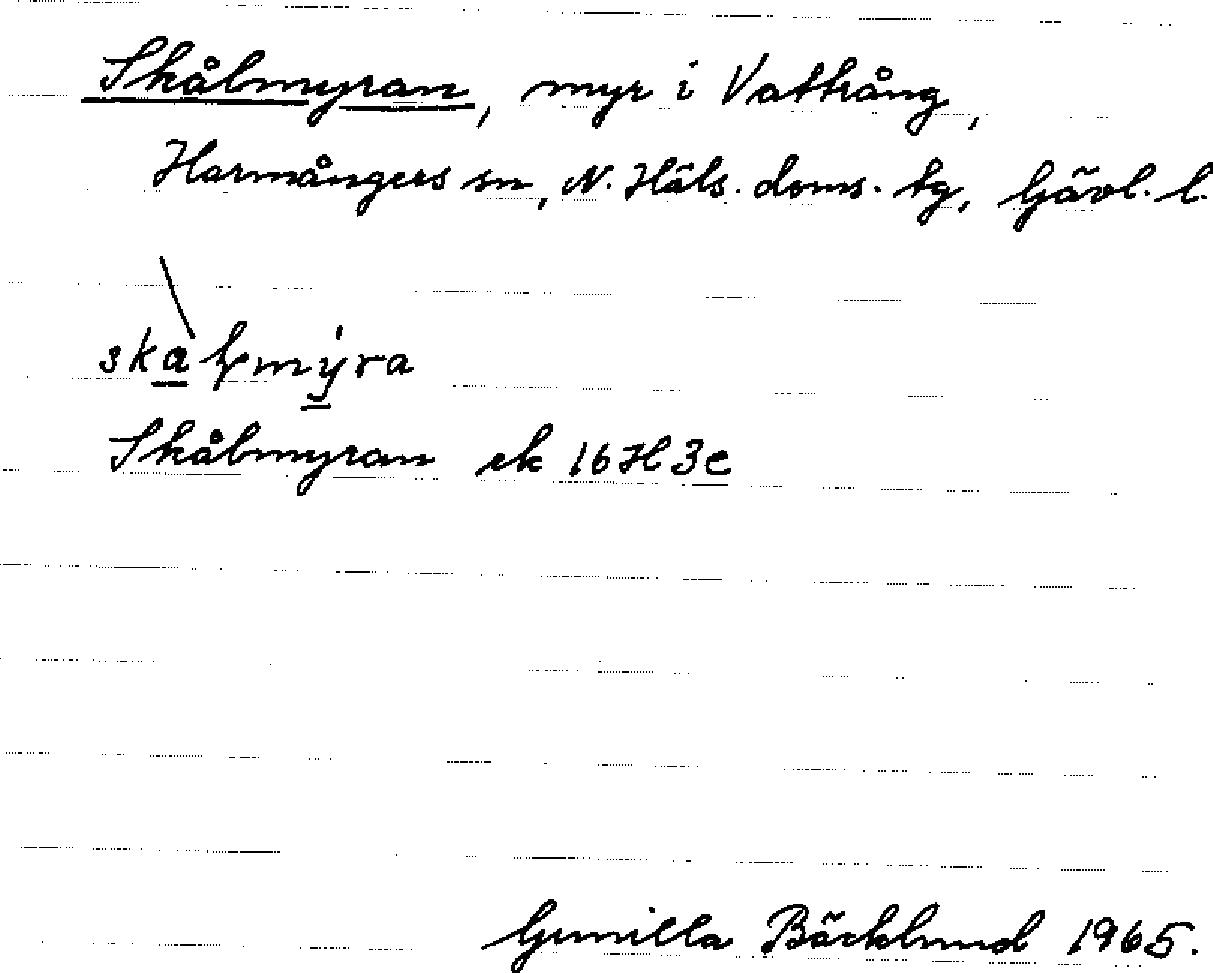 Skålmyran, myr i Vattrång,
Harmångers sn, N. Häls. doms. tg, Gävl. l.
Skålmyran ek 16H3e
Gunilla Bäcklund 1965.